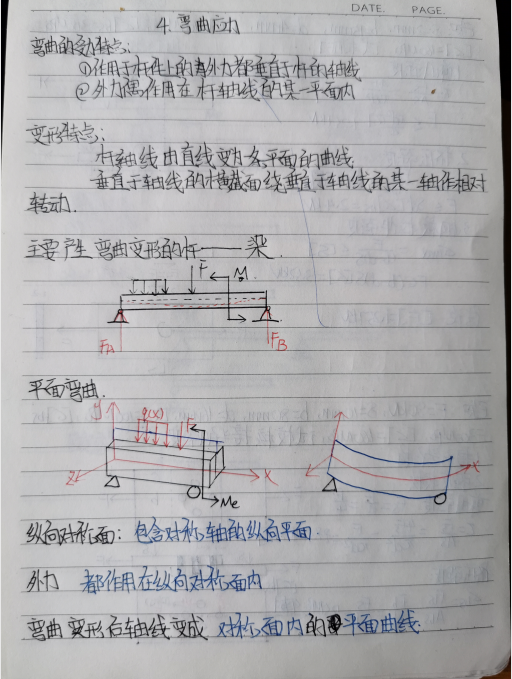 DATE. PAGE.
4. 弯曲应力
弯曲的受力特点:
①作用于杆件上的外力都垂直于杆的轴线
②外力偶作用在杆轴线的某一平面内
变形特点:
杆轴线由直线变为平面的曲线
垂直于轴线的横截面绕垂直于轴线的某一轴作相对
转动.
主要产生弯曲变形的杆——梁.
F M.
FA FB
平面弯曲.
y q(x) F
z x x
Me
纵向对称面: 包含对称轴的纵向平面.
外力 都作用在纵向对称面内
弯曲变形后轴线变成 对称面内的平面曲线.